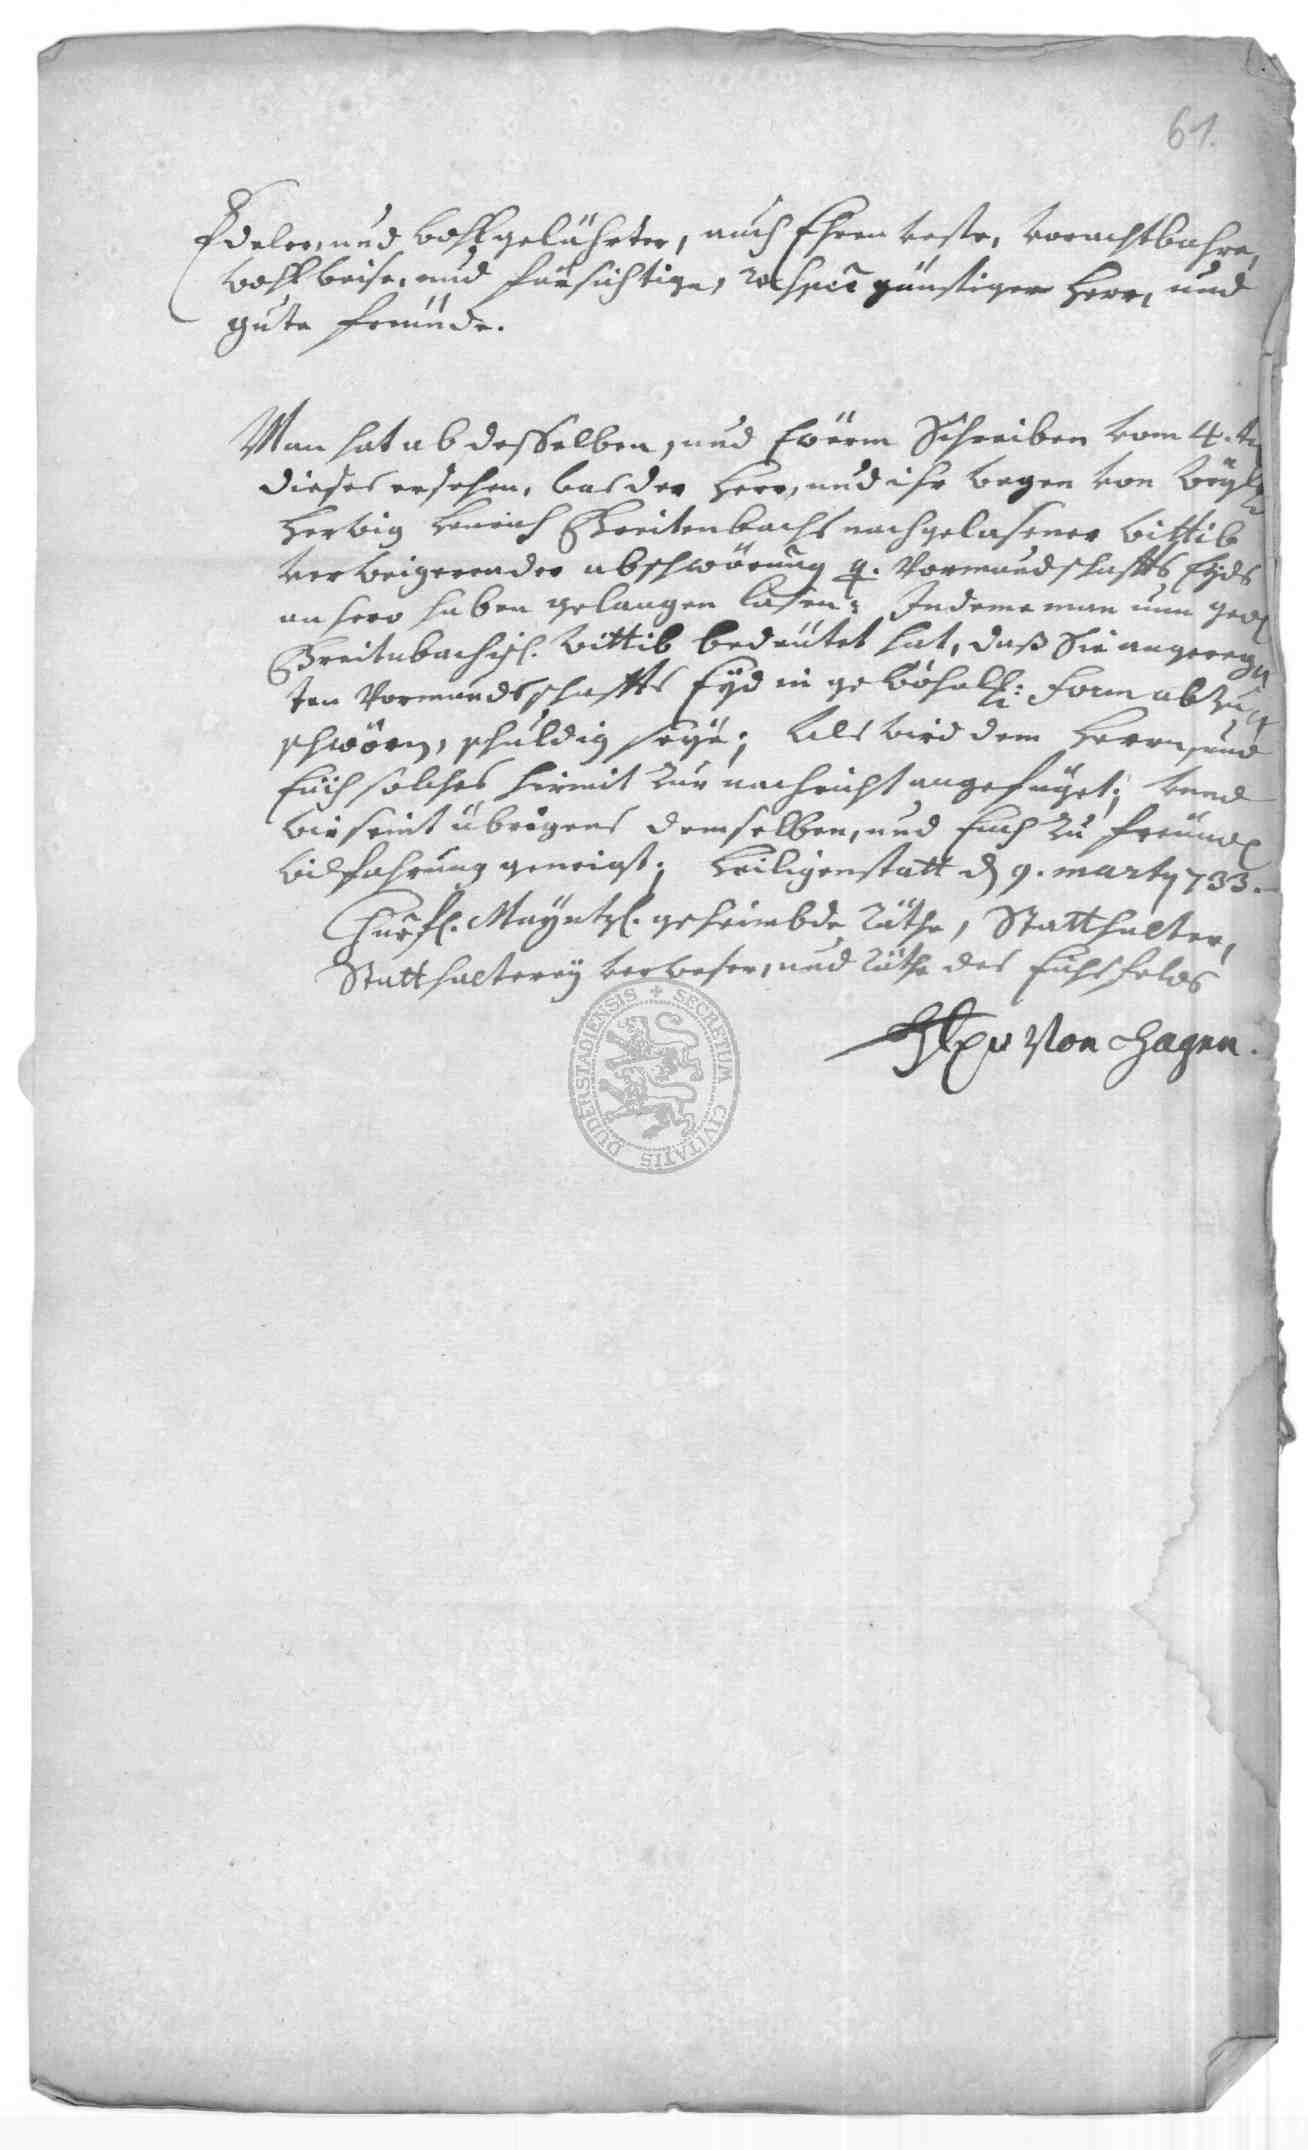 61.
Edeler, und wohlgelährter, auch Ehren veste, vorachtbahre,
wohlweise, und fürsichtige, respec günstiger Herr, und
gute freünde.
Man hat ab desselben, und Ewerm Schreiben vom 4. ten
dieses ersehen, was der Herr, und ihr wegen von weyl.
Herwig Henrich Breitenbachs nachgelasener wittib
verweigerender abschwörung q. Vormundschaffts Eyds
anhero haben gelangen lasen; Indeme man nun ged.
Breitnbachisch. wittib bedeütet hat, daß Sie angereg
ten Vormundsschaffts Eyd in gewöhnl: form abzu
schwören, schuldig seye; Als wird dem Herrn, und
Euch solches hirmit zur nachricht angefüget; unnd
wir seint übrigens demselben, und Euch zu freundl.
wilfahrung geneigt; Heiligenstatt d 9. marty 1733.
Churfl. Mayntzl. geheimbde räthe, Statthalter,
Statthalterey verweser, und räthe des Eichsfelds
von Hagen.
SECRETUM CIVITATIS DUDERSTADIENSIS